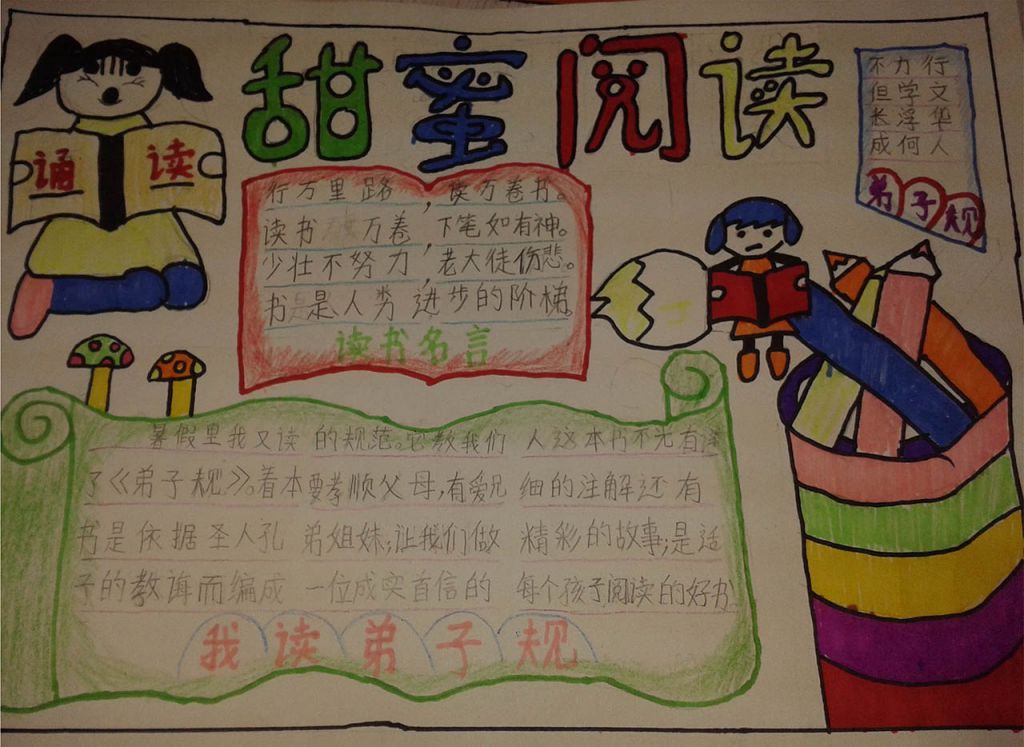 甜蜜阅读
诵读
不力行
但学文
长浮华
成何人
弟子规
行万里路,读万卷书。
读书 万卷,下笔如有神。
少壮不努力,老大徒伤悲。
书是人类进步的阶梯。
读书名言
暑假里我又读
了《弟子规》。着本
书是依据圣人孔
子的教诲而编成
的规范。它教我们
要孝顺父母,有爱兄
弟姐妹;让我们做
一位成实首信的
人这本书不光有详
细的注解还有
精彩的故事;是适
每个孩子阅读的好书
我读弟子规